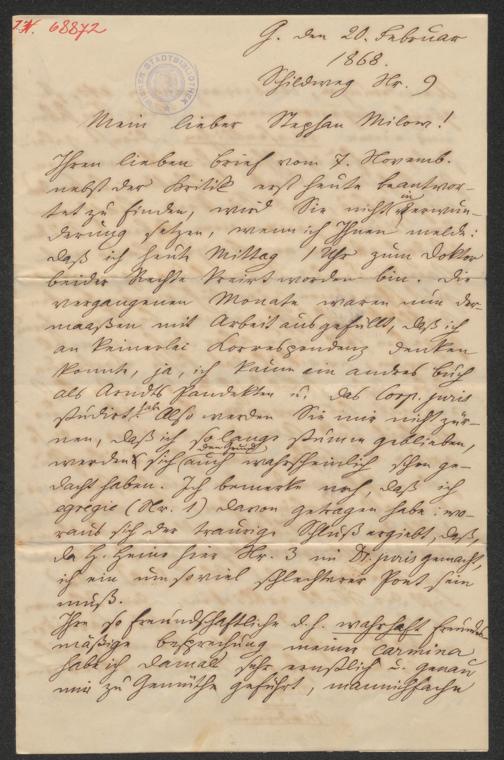 I.N. 68872
WIENER STADTBIBLIOTHEK
G. den 20. Februar
1868.
Schildweg Nr. 9
Mein lieber Stephan Milow!
Ihren lieben Brief vom 7. Novemb.
nebst der Kritik erst heute beantwor-
tet zu finden, wird Sie nicht in Verwun-
derung setzen, wenn ich Ihnen melde:
daß ich heute Mittag 1 Uhr zum Doktor
beider Rechte kreirt worden bin. Die
vergangenen Monate waren nun der-
maaßen mit Arbeit ausgefüllt, daß ich
an keinerlei Korrespondenz denken
konnte, ja, ich kaum ein andres Buch
als Arndts Pandekten u. das Corp. juris
studirt hab. Also werden Sie mir nicht zür-
nen, daß ich so lange stumm geblieben,
werden sich auch den Grund wahrscheinlich schon ge-
dacht haben. Ich bemerke noch, daß ich
egregie (Nr. 1) davon getragen habe: wo-
raus sich der traurige Schluß ergiebt, daß,
da H. Heine hier Nr. 3 im Dr. juris gemacht,
ich ein um so viel schlechterer Poet sein
muß.
Ihre so freundschaftliche d. h. wahrhaft freundes-
mäßige Besprechung meiner Carmina
habe ich damals sehr ernstlich u. genau
mir zu Gemüthe geführt, mannichfache